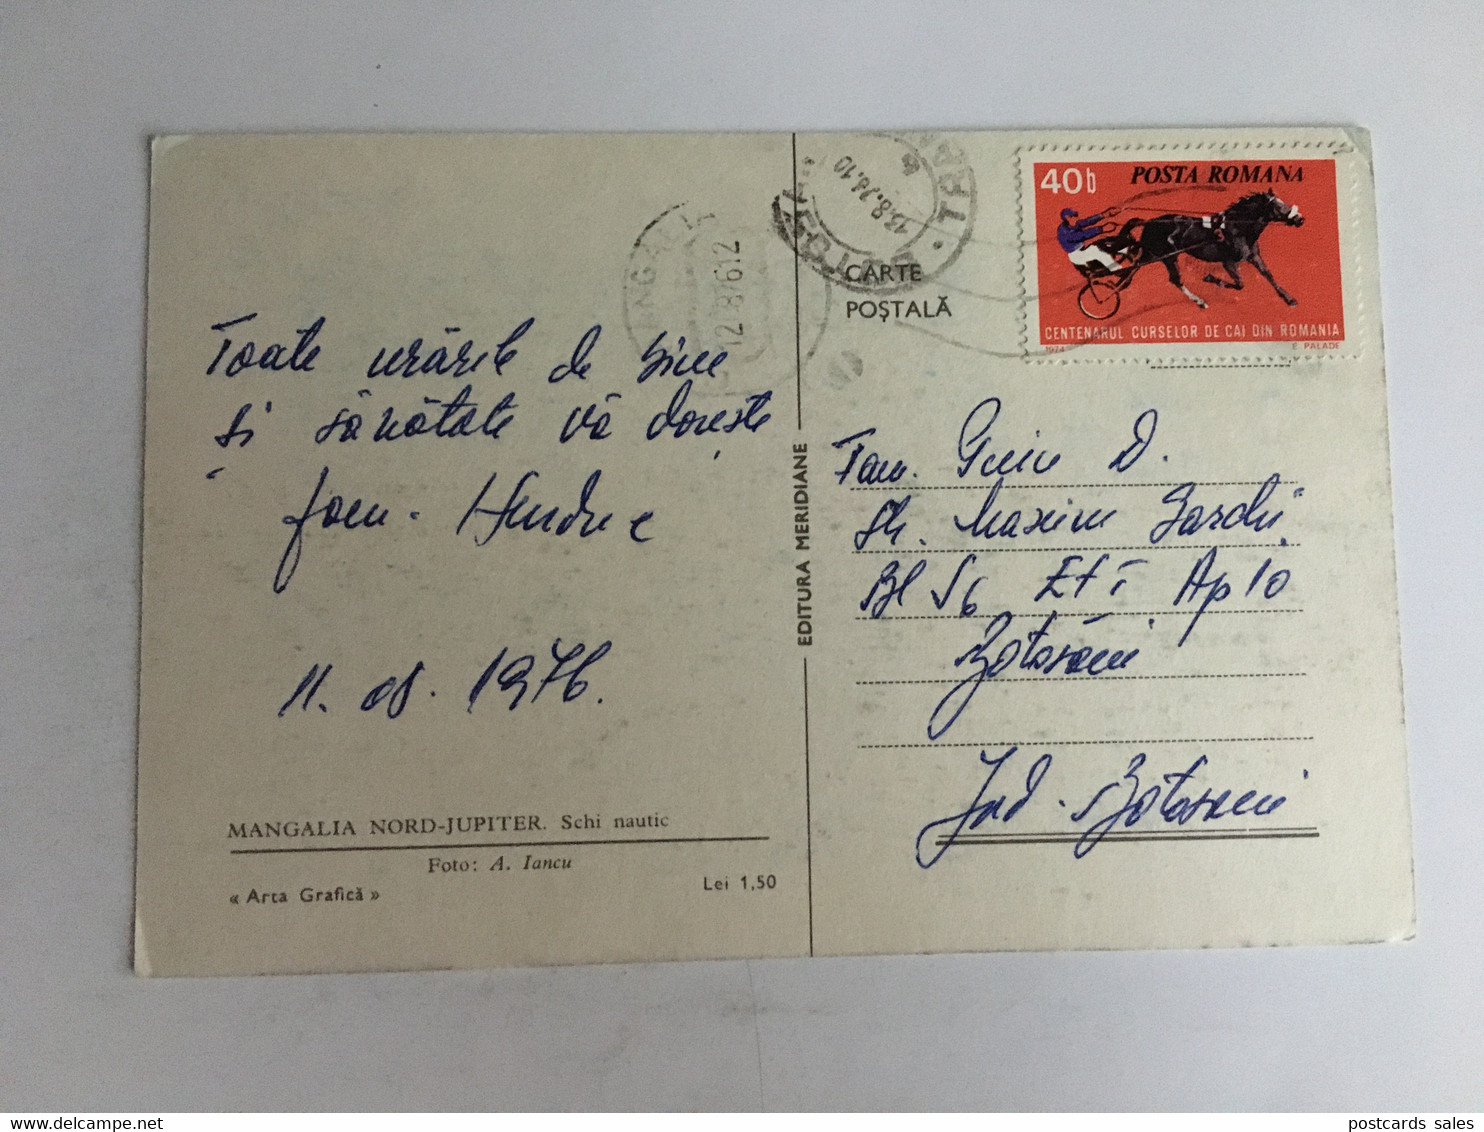 POSTA ROMANA
40b
CENTENARUL CURSELOR DE CAI DIN ROMANIA
1974 E. PALADE
CARTE
POȘTALĂ
12.8.76 12
13.8.76.10
BOTOȘANI
Toate urările de bine
și sănătate vă dorește
fam.
11. 08. 1976.
EDITURA MERIDIANE
Fam. D.
Str. Maxim Gorchi
Bl S6 Et I Ap 10
Botoșani
Jud. Botoșani
MANGALIA NORD-JUPITER. Schi nautic
Foto: A. Iancu
« Arta Grafică »
Lei 1,50
postcards sales